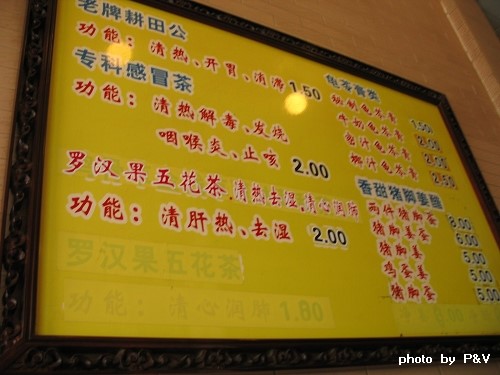 老牌耕田公
功能：清热、开胃、消滞 1.50
专科感冒茶
功能：清热解毒、发烧
咽喉炎、止咳 2.00
罗汉果五花茶 清热去湿,清心润肺
功能：清肝热、去湿 2.00
罗汉果五花茶
功能：清心润肺 1.80
龟苓膏类
秘制龟苓膏 1.50
牛奶龟苓膏 2.00
蜜汁龟苓膏 2.00
椰汁龟苓膏 2.50
香甜猪脚姜醋
两件猪脚蛋 8.00
猪脚姜蛋 6.00
猪脚姜 5.00
鸡蛋姜 5.00
猪脚蛋 5.00
photo by P&V